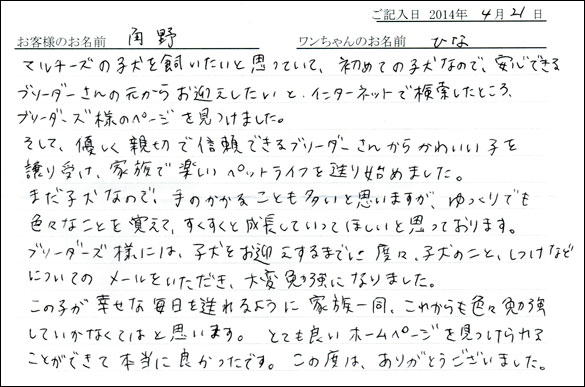 ご記入日 2014年 4月 21日
お客様のお名前 角野 ワンちゃんのお名前 ひな
マルチーズの子犬を飼いたいと思っていて、初めての子犬なので、安心できる
ブリーダーさんの元からお迎えしたいと、インターネットで検索したところ、
ブリーダーズ様のページを見つけました。
そして、優しく親切で信頼できるブリーダーさんからかわいい子を
譲り受け、家族で楽しいペットライフを送り始めました。
まだ子犬なので、手のかかることも多いと思いますが、ゆっくりでも
色々なことを覚えて、すくすくと成長していってほしいと思っております。
ブリーダーズ様には、子犬をお迎えするまでに度々、子犬のこと、しつけなど
についてのメールをいただき、大変勉強になりました。
この子が幸せな毎日を送れるように家族一同、これからも色々勉強
していかなくてはと思います。とても良いホームページを見つけられる
ことができて本当に良かったです。この度は、ありがとうございました。